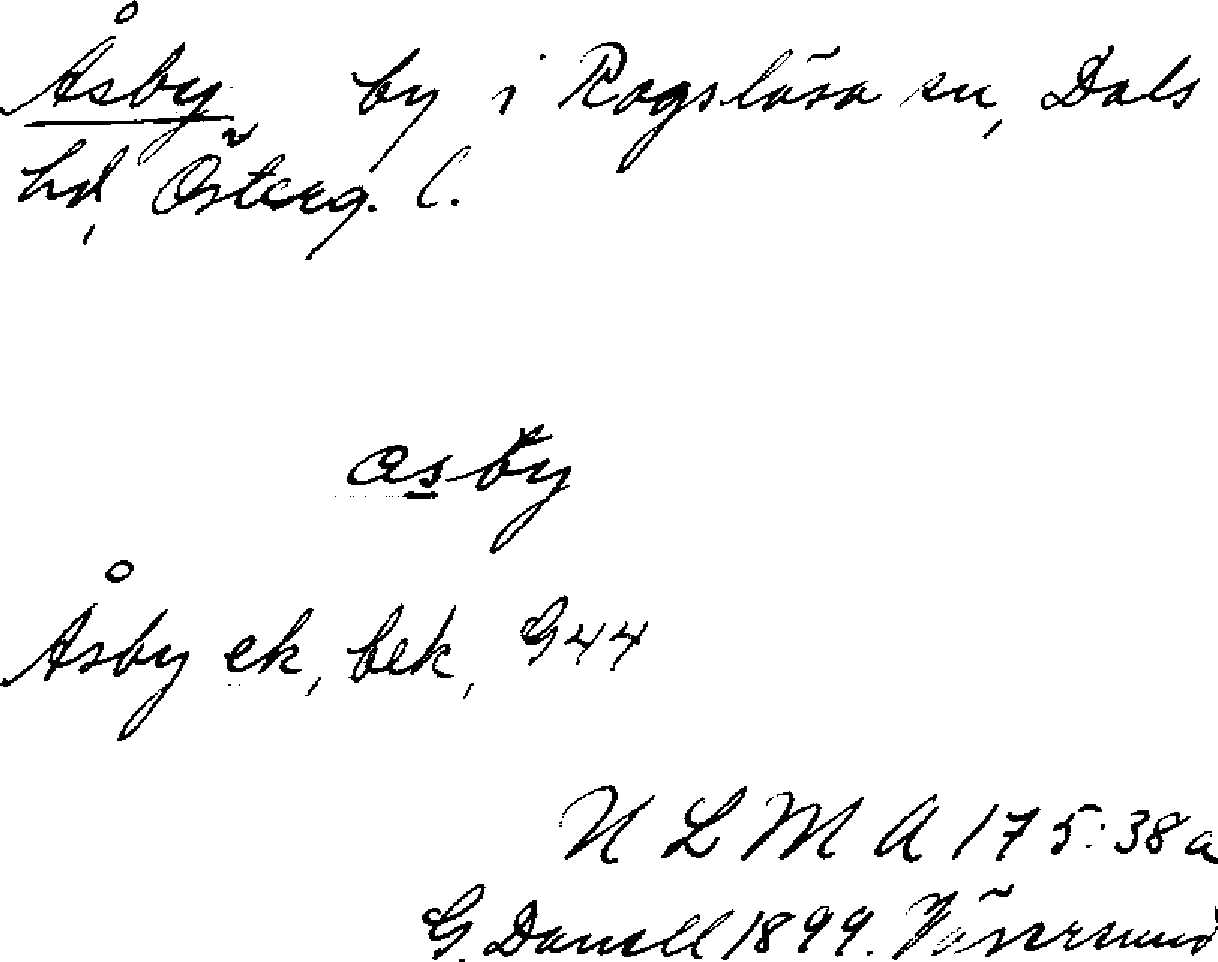 Åsby by i Rogslösa sn, Dals
hd, Österg. l.
åsby
Åsby ek, bek, G44
ULMA 175:38a
G. Danell 1899. Väversunda